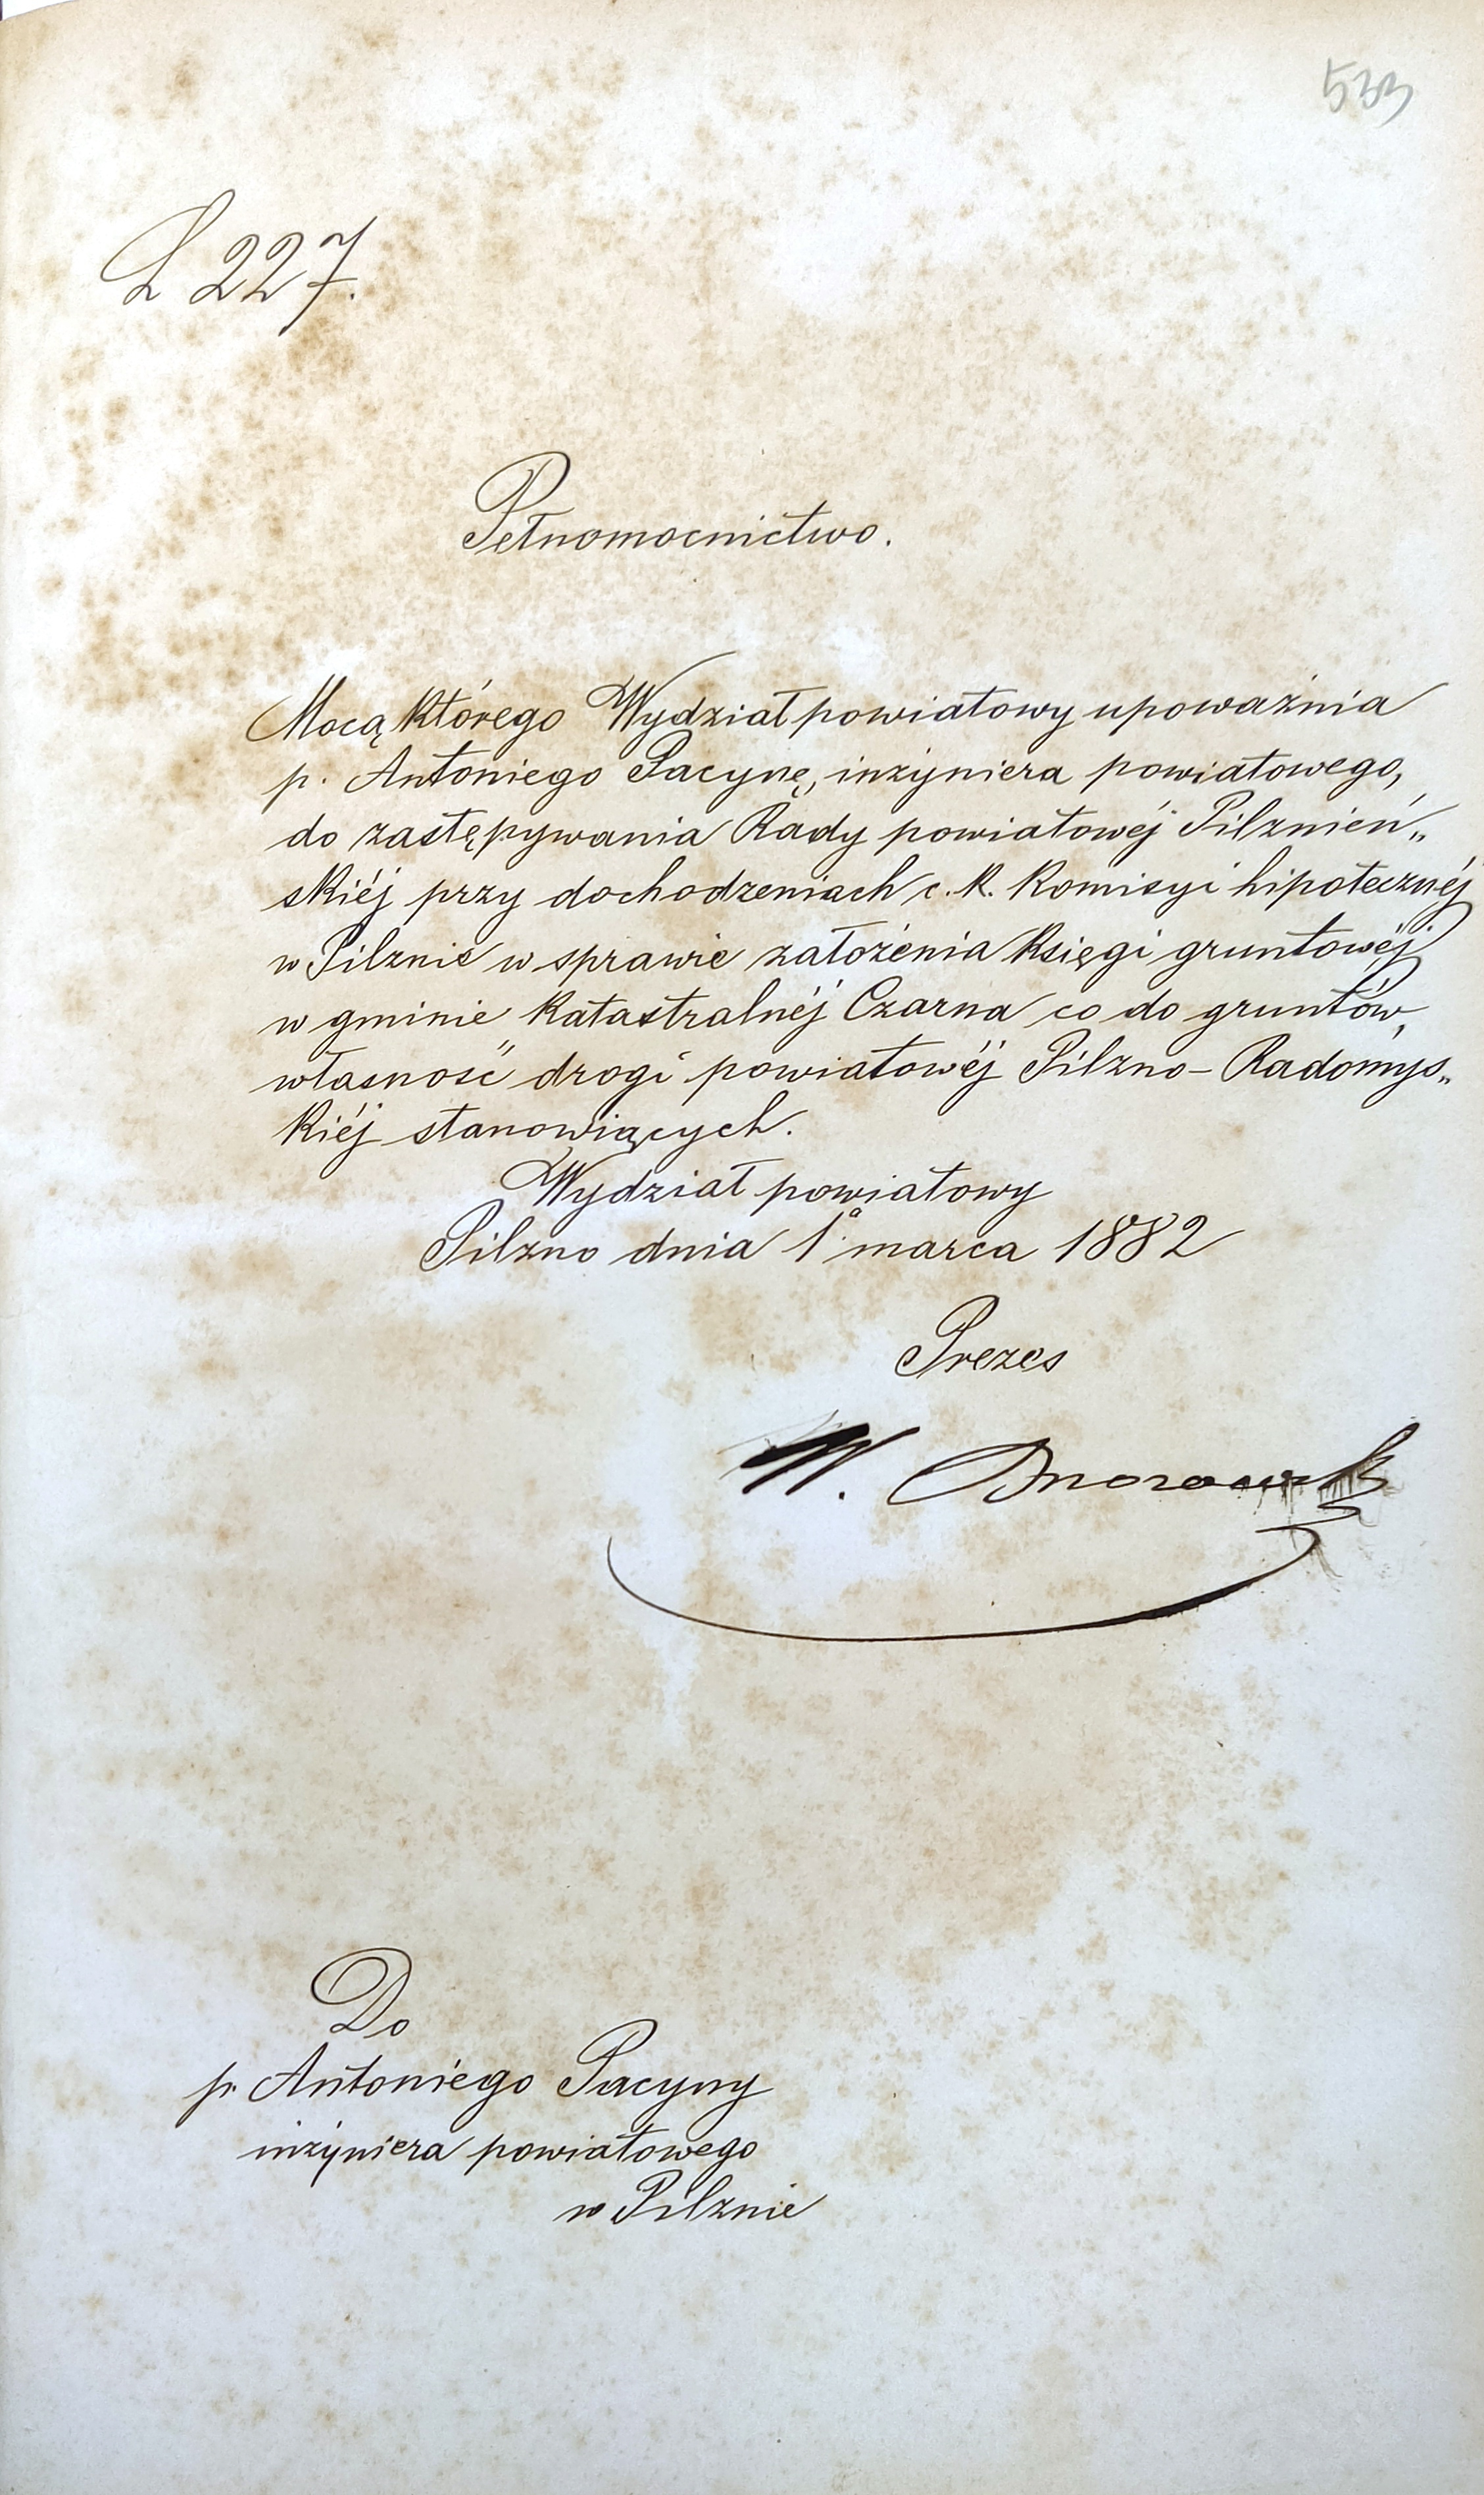 533
L 227.
Pełnomocnictwo.
Mocą którego Wydział powiatowy upoważnia
p. Antoniego Pacynę, inżyniera powiatowego,
do zastępywania Rady powiatowéj Pilznień„
skiéj przy dochodzeniach c. k. Komisyi hipotecznéj
w Pilznie w sprawie założenia księgi gruntowéj
w gminie katastralnéj Czarna co do gruntów,
własność drogi powiatowéj Pilzno-Radomys„
kiéj stanowiących.
Wydział powiatowy
Pilzno dnia 1º marca 1882
Prezes
W.
Do
p. Antoniego Pacyny
inżyniera powiatowego
w Pilznie